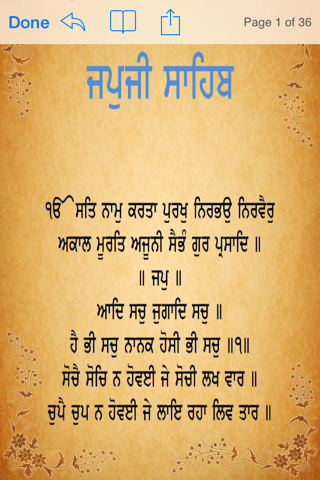 Done
Page 1 of 36
ਜਪੁਜੀ ਸਾਹਿਬ
ੴ ਸਤਿ ਨਾਮੁ ਕਰਤਾ ਪੁਰਖੁ ਨਿਰਭਉ ਨਿਰਵੈਰੁ
ਅਕਾਲ ਮੂਰਤਿ ਅਜੂਨੀ ਸੈਭੰ ਗੁਰ ਪ੍ਰਸਾਦਿ ॥
॥ ਜਪੁ ॥
ਆਦਿ ਸਚੁ ਜੁਗਾਦਿ ਸਚੁ ॥
ਹੈ ਭੀ ਸਚੁ ਨਾਨਕ ਹੋਸੀ ਭੀ ਸਚੁ ॥੧॥
ਸੋਚੈ ਸੋਚਿ ਨ ਹੋਵਈ ਜੇ ਸੋਚੀ ਲਖ ਵਾਰ ॥
ਚੁਪੈ ਚੁਪ ਨ ਹੋਵਈ ਜੇ ਲਾਇ ਰਹਾ ਲਿਵ ਤਾਰ ॥